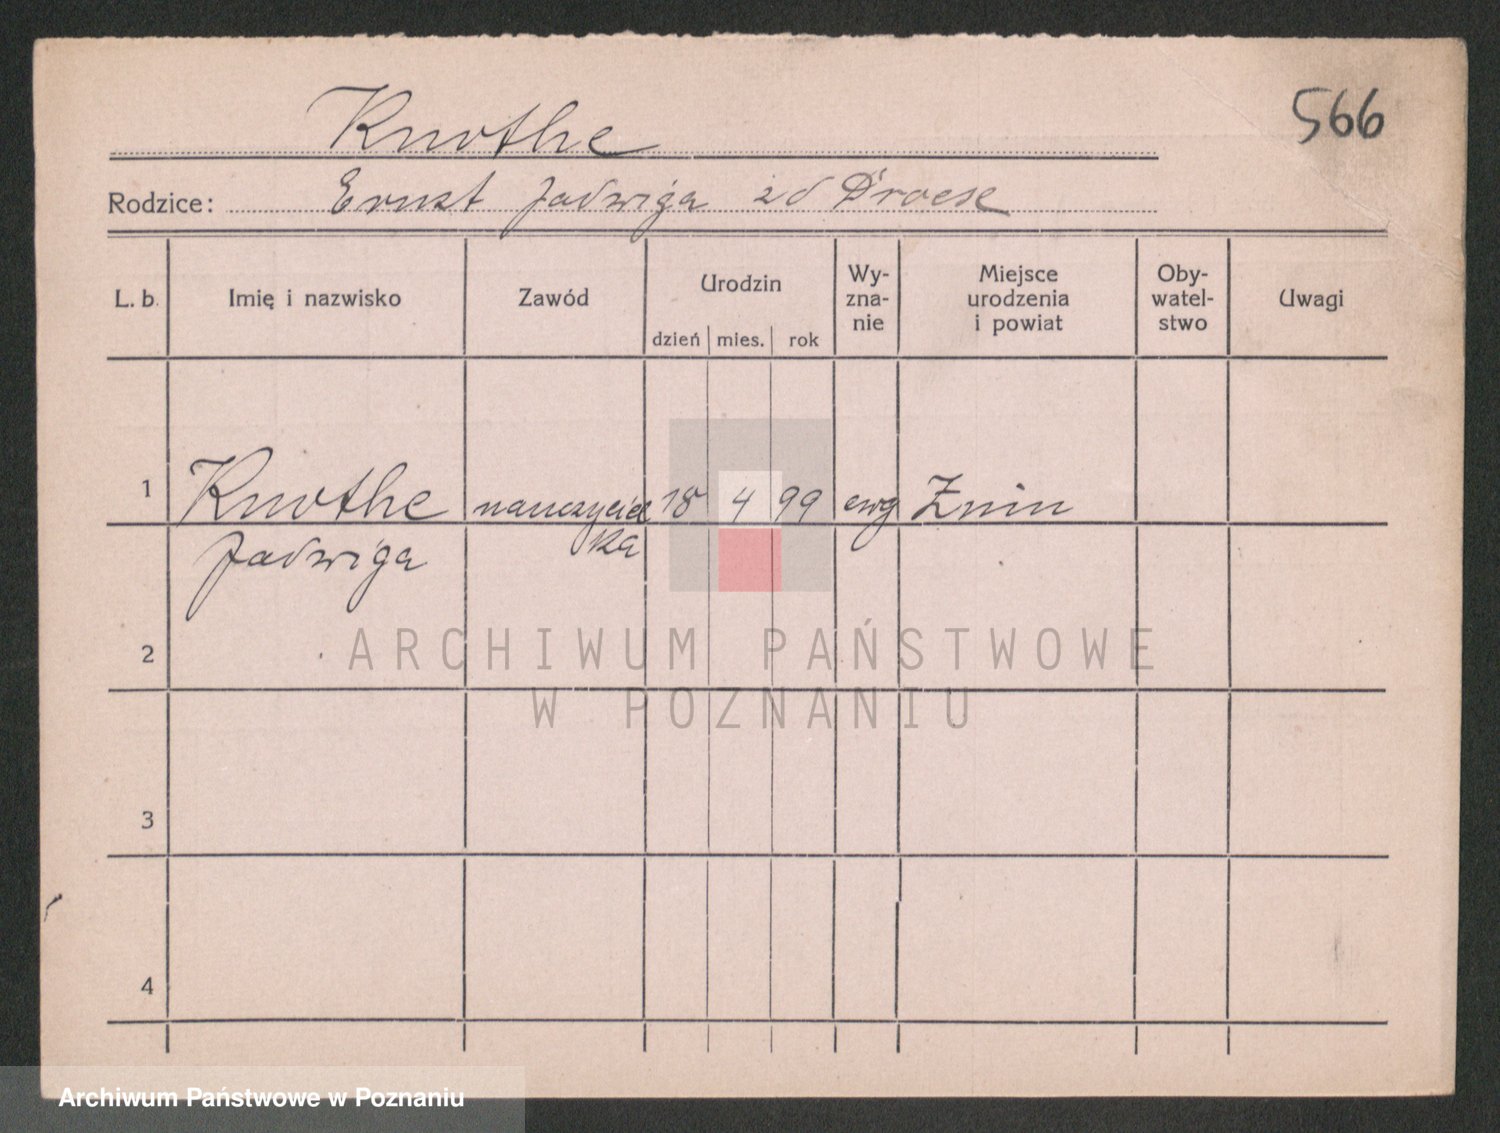 566
Knothe
Rodzice: Ernst Jadwiga zd Droese
L. b. Imię i nazwisko Zawód Urodzin dzień mies. rok Wy-zna-nie Miejsce urodzenia i powiat Oby-watel-stwo Uwagi
1 Knothe nauczyciel 18 4 99 ewg Znin
Jadwiga ka
2
ARCHIWUM PAŃSTWOWE
W POZNANIU
3
4
Archiwum Państwowe w Poznaniu